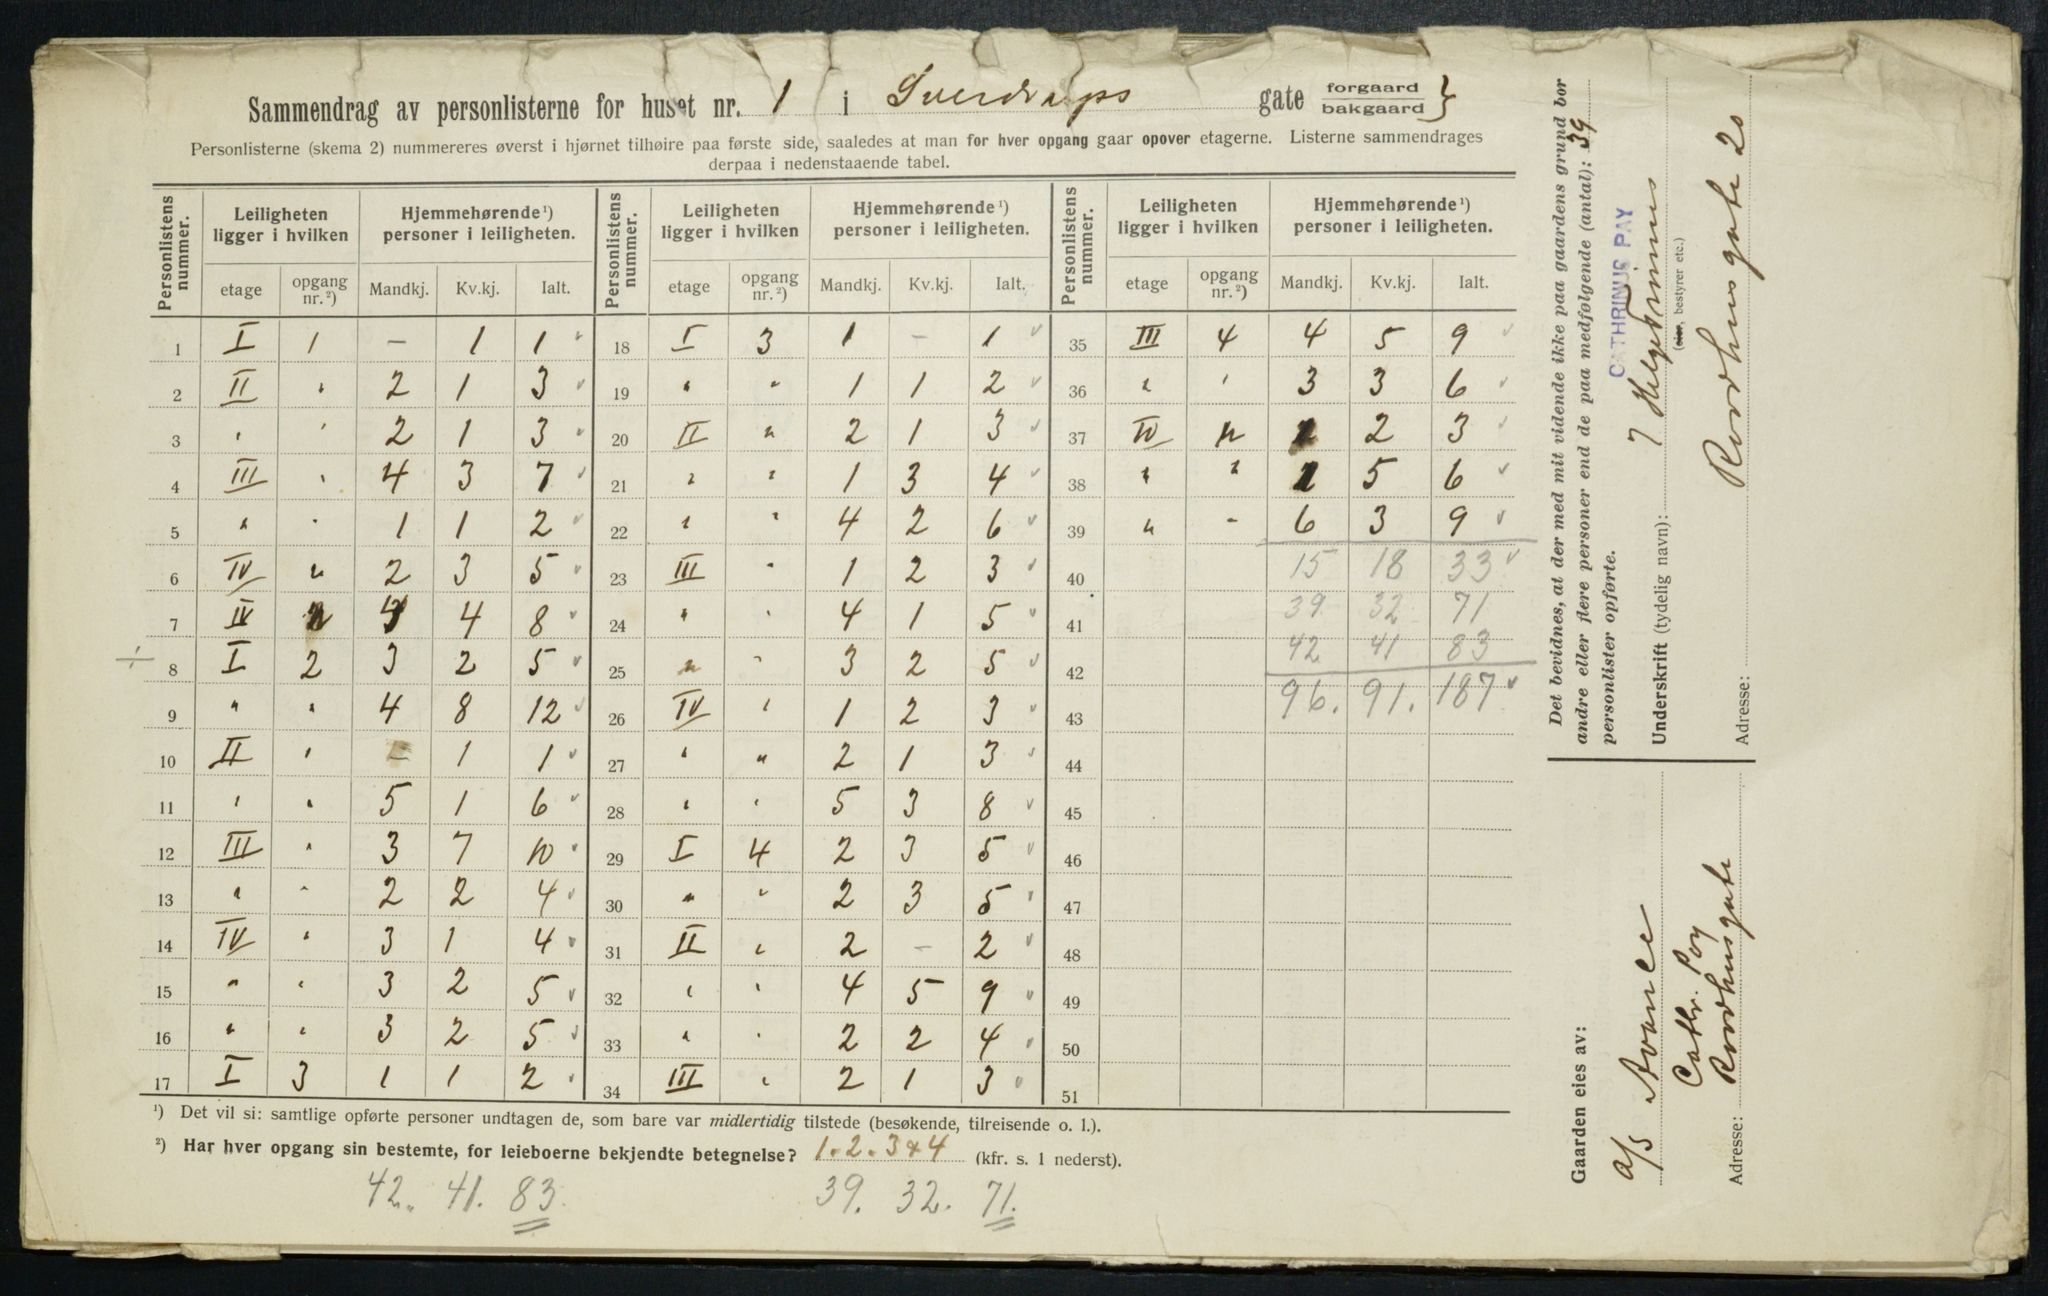 Sammendrag av personlisterne for huset nr. 1 i Sverdrups gate forgaard bakgaard }
Personlisterne (skema 2) nummereres øverst i hjørnet tilhøire paa første side, saaledes at man for hver opgang gaar opover etagerne. Listerne sammendrages
derpaa i nedenstaaende tabel.
Personlistens nummer. Leiligheten ligger i hvilken Hjemmehørende ¹) personer i leiligheten. Personlistens nummer. Leiligheten ligger i hvilken Hjemmehørende ¹) personer i leiligheten. Personlistens nummer. Leiligheten ligger i hvilken Hjemmehørende ¹) personer i leiligheten.
etage opgang nr. ²) Mandkj. Kv.kj. Ialt. etage opgang nr. ²) Mandkj. Kv.kj. Ialt. etage opgang nr. ²) Mandkj. Kv.kj. Ialt.
1 I 1 – 1 1 18 I 3 1 – 1 35 III 4 4 5 9
2 II " 2 1 3 19 " " 1 1 2 36 " " 3 3 6
3 " " 2 1 3 20 II " 2 1 3 37 IV " 1 2 3
4 III " 4 3 7 21 " " 1 3 4 38 " " 1 5 6
5 " " 1 1 2 22 " " 4 2 6 39 " " 6 3 9
6 IV " 2 3 5 23 III " 1 2 3 40 15 18 33
7 IV 4 4 8 24 " " 4 1 5 41 39 32 71
÷ 8 I 2 3 2 5 25 " " 3 2 5 42 42 41 83
9 " " 4 8 12 26 IV " 1 2 3 43 96. 91. 187
10 II " – 1 1 27 " " 2 1 3 44
11 " " 5 1 6 28 " " 5 3 8 45
12 III " 3 7 10 29 I 4 2 3 5 46
13 " " 2 2 4 30 " " 2 3 5 47
14 IV " 3 1 4 31 II " 2 – 2 48
15 " " 3 2 5 32 " " 4 5 9 49
16 " " 3 2 5 33 " " 2 2 4 50
17 I 3 1 1 2 34 III " 2 1 3 51
¹) Det vil si: samtlige opførte personer undtagen de, som bare var midlertidig tilstede (besøkende, tilreisende o. l.).
²) Har hver opgang sin bestemte, for leieboerne bekjendte betegnelse? 1.2.3&4 (kfr. s. 1 nederst).
42. 41. 83. 39. 32. 71.
Det bevidnes, at der med mit vidende ikke paa gaardens grund bor
andre eller flere personer end de paa medfølgende (antal): 39
personlister opførte.
CATHRINUS PAY
Underskrift (tydelig navn):
(eier, bestyrer etc.)
Adresse: Raadhusgate 20
Gaarden eies av:
A/S
Cathr. Pay
Adresse: Raadhusgate